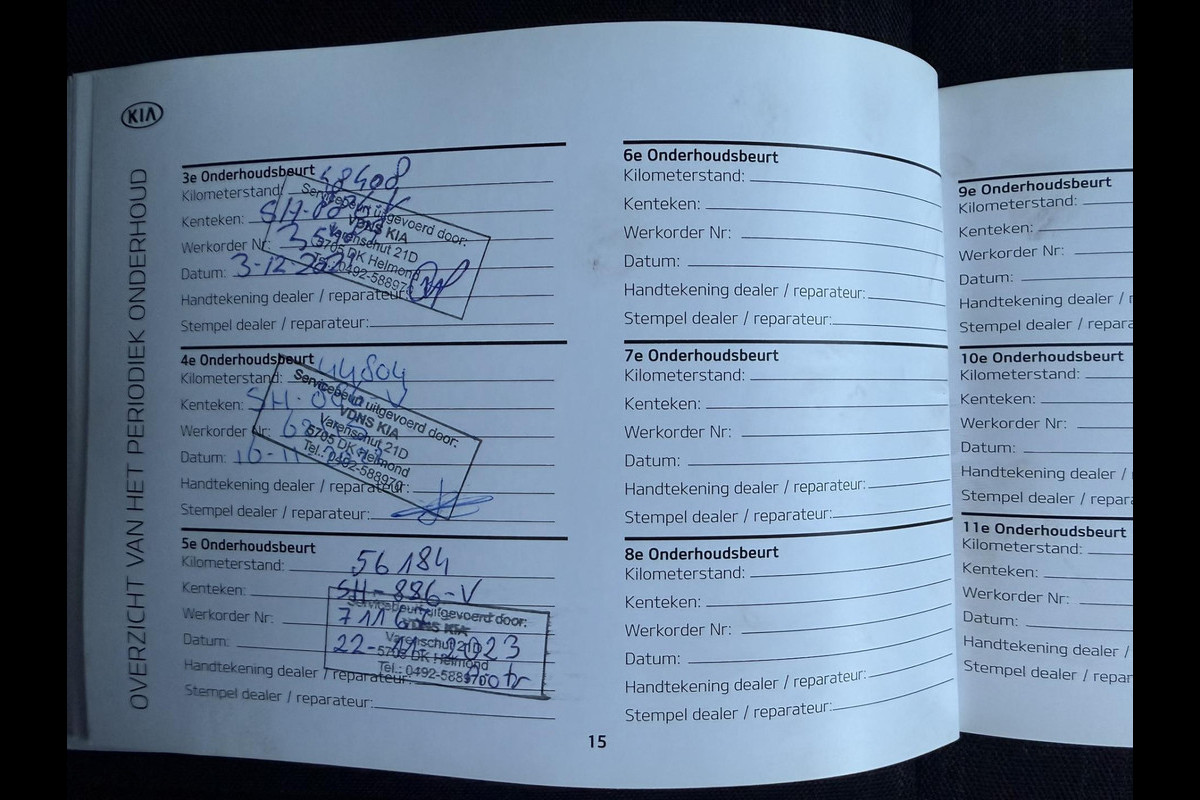 KIA
OVERZICHT VAN HET PERIODIEK ONDERHOUD
3e Onderhoudsbeurt
Kilometerstand: 48408
Kenteken: SH-886-V
Werkorder Nr:
Datum: 3-12-2021
Handtekening dealer / reparateur:
Stempel dealer / reparateur:
Servicebeurt uitgevoerd door:
VDNS KIA
Varenschut 21D
5705 DK Helmond
Tel.: 0492-588970
4e Onderhoudsbeurt
Kilometerstand: 44804
Kenteken: SH-886-V
Werkorder Nr:
Datum:
Handtekening dealer / reparateur:
Stempel dealer / reparateur:
Servicebeurt uitgevoerd door:
VDNS KIA
Varenschut 21D
5705 DK Helmond
Tel.: 0492-588970
5e Onderhoudsbeurt
Kilometerstand: 56184
Kenteken: SH-886-V
Werkorder Nr:
Datum: 22-11-2023
Handtekening dealer / reparateur:
Stempel dealer / reparateur:
Servicebeurt uitgevoerd door:
VDNS KIA
Varenschut 21D
5705 DK Helmond
Tel.: 0492-588970
6e Onderhoudsbeurt
Kilometerstand:
Kenteken:
Werkorder Nr:
Datum:
Handtekening dealer / reparateur:
Stempel dealer / reparateur:
7e Onderhoudsbeurt
Kilometerstand:
Kenteken:
Werkorder Nr:
Datum:
Handtekening dealer / reparateur:
Stempel dealer / reparateur:
8e Onderhoudsbeurt
Kilometerstand:
Kenteken:
Werkorder Nr:
Datum:
Handtekening dealer / reparateur:
Stempel dealer / reparateur:
15
9e Onderhoudsbeurt
Kilometerstand:
Kenteken:
Werkorder Nr:
Datum:
Handtekening dealer / r
Stempel dealer / repara
10e Onderhoudsbeurt
Kilometerstand:
Kenteken:
Werkorder Nr:
Datum:
Handtekening dealer /
Stempel dealer / repara
11e Onderhoudsbeurt
Kilometerstand:
Kenteken:
Werkorder Nr:
Datum:
Handtekening dealer /
Stempel dealer / repar